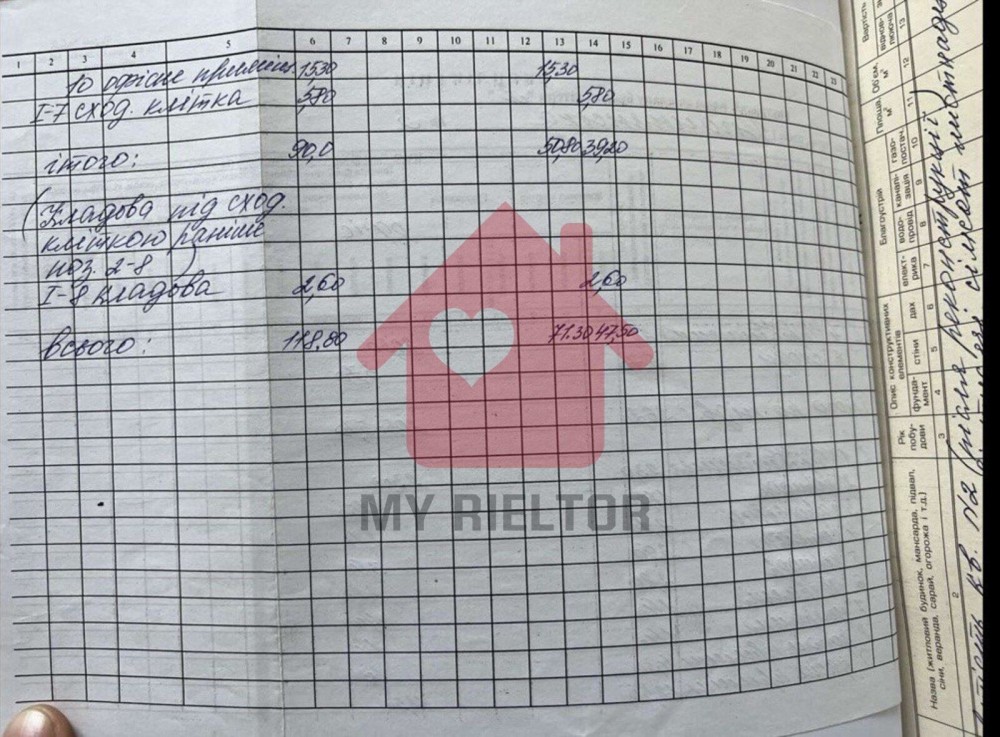 1 2 3 4 5 6 7 8 9 10 11 12 13 14 15 16 17 18 19 20 21 22 23
10 офісне приміщ. 15,30 15,30
I-7 сход. клітка 5,80 5,80
ітого: 90,0 50,80 39,20
(Кладова під сход.
кліткою раніше
поз. 2-8)
I-8 кладова 2,60 2,60
всього: 118,80 71.30 47,50
MY RIELTOR
Назва (житловий будинок, мансарда, підвал, сіни, веранда, сарай, огорожа і т.д.)
Рік побу-дови
Опис конструктивних елементів
фунда-мент
стіни
дах
Благоустрій
елект-рика
водо-провід
каналі-зація
газо-постач.
Площа, м²
Об'єм, м³
Вартість
2 3 4 5 6 7 8 9 10 11 12 13
кв. №2 (після реконструкції)